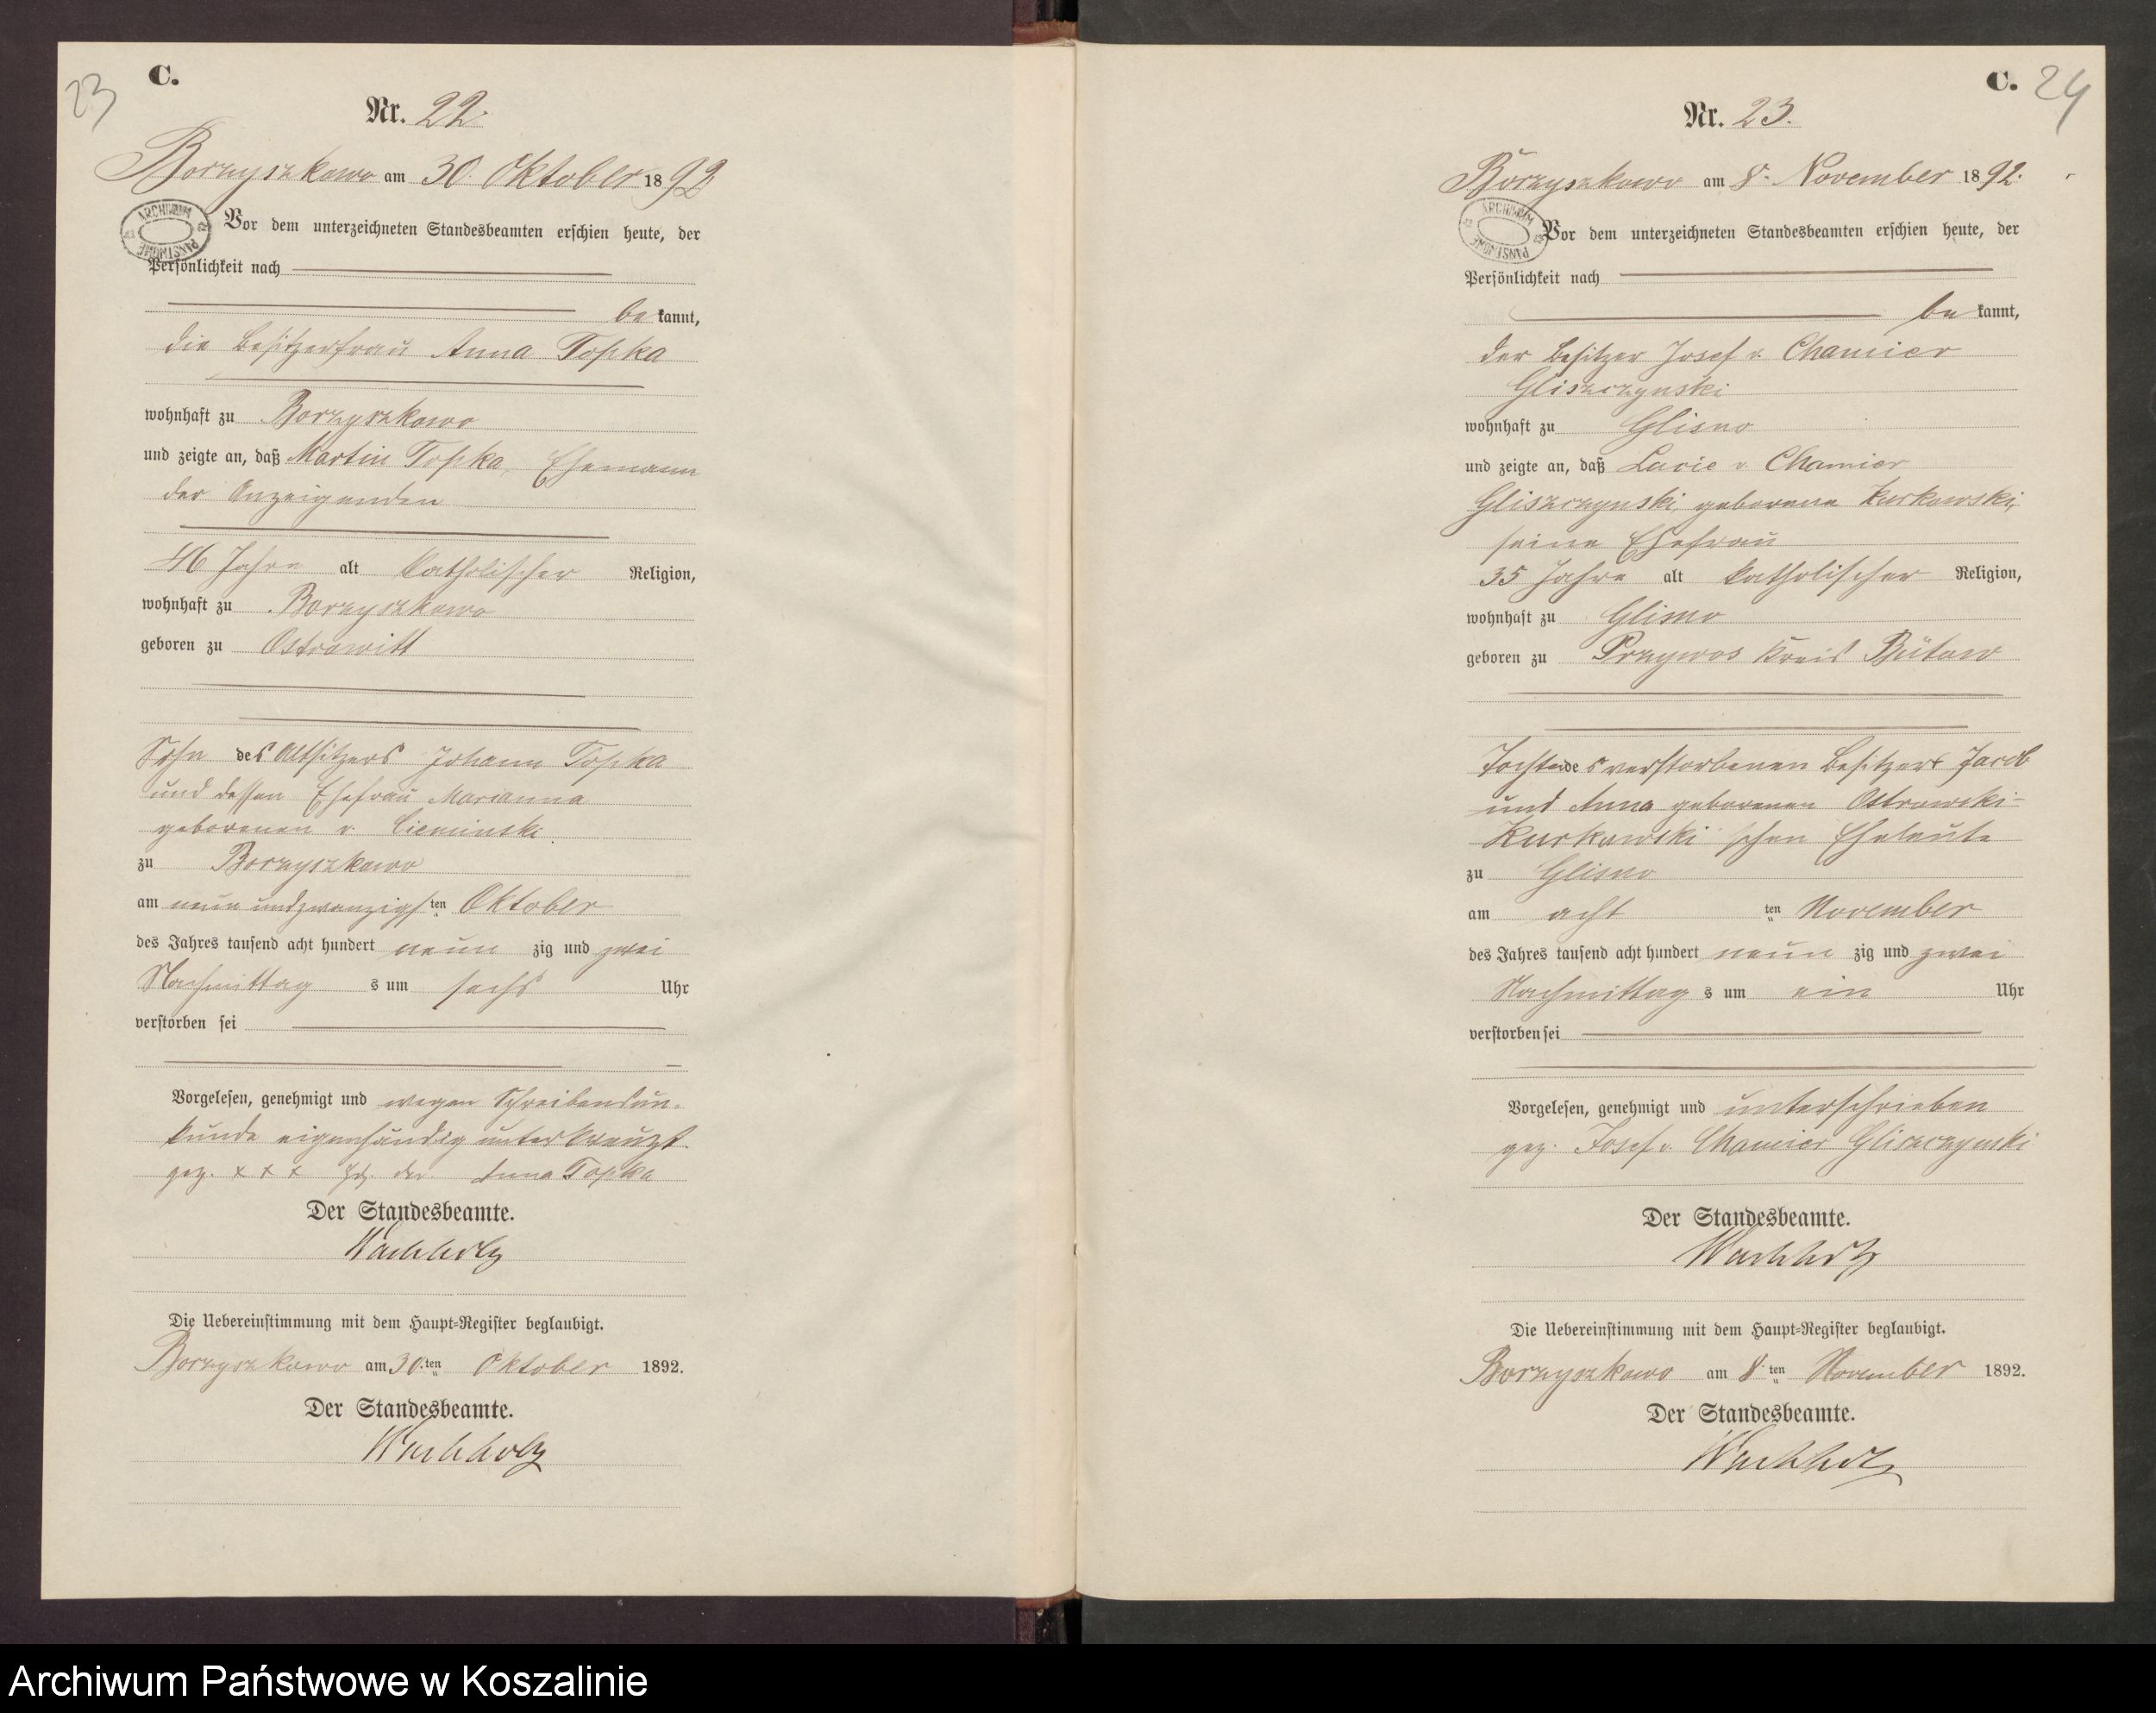 23
C.
Nr. 22.
Borzyszkowo am 30. Oktober 1892
ARCHIWUM PAŃSTWOWE
Vor dem unterzeichneten Standesbeamten erschien heute, der
Persönlichkeit nach
be kannt,
die Besitzerfrau Anna Topka
wohnhaft zu Borzyszkowo
und zeigte an, daß Martin Topka, Ehemann
der Anzeigenden
46 Jahre alt katholischer Religion,
wohnhaft zu Borzyszkowo
geboren zu Ostrowitt
Sohn des Altsitzers Johann Topka
und dessen Ehefrau Marianna
geborenen v. Cieminski
zu Borzyszkowo
am neun und zwanzigsten Oktober
des Jahres tausend acht hundert neun zig und zwei
Nachmittag s um sechs Uhr
verstorben sei
Vorgelesen, genehmigt und wegen Schreibensun-
kunde eigenhändig unterkreuzt.
gez. x x x Hdz. der Anna Topka
Der Standesbeamte.
Wachholz
Die Uebereinstimmung mit dem Haupt-Register beglaubigt.
Borzyszkowo am 30.ten Oktober 1892.
Der Standesbeamte.
Wachholz
C. 24
Nr. 23.
Borzyszkowo am 8. November 1892.
ARCHIWUM PAŃSTWOWE
Vor dem unterzeichneten Standesbeamten erschien heute, der
Persönlichkeit nach
be kannt,
der Besitzer Josef v. Chamier
Gliszczynski
wohnhaft zu Glisno
und zeigte an, daß Lucie v. Chamier
Gliszczynski, geborene Kurkowski,
seine Ehefrau
35 Jahre alt katholischer Religion,
wohnhaft zu Glisno
geboren zu Przywos Kreis Bütow
Tochter des verstorbenen Besitzers Jacob
und Anna geborenen Ostrowski-
Kurkowski schen Eheleute
zu Glisno
am acht ten November
des Jahres tausend acht hundert neun zig und zwei
Nachmittag s um ein Uhr
verstorben sei
Vorgelesen, genehmigt und unterschrieben
gez. Josef v. Chamier Gliszczynski
Der Standesbeamte.
Wachholz
Die Uebereinstimmung mit dem Haupt-Register beglaubigt.
Borzyszkowo am 8.ten November 1892.
Der Standesbeamte.
Wachholz
Archiwum Państwowe w Koszalinie